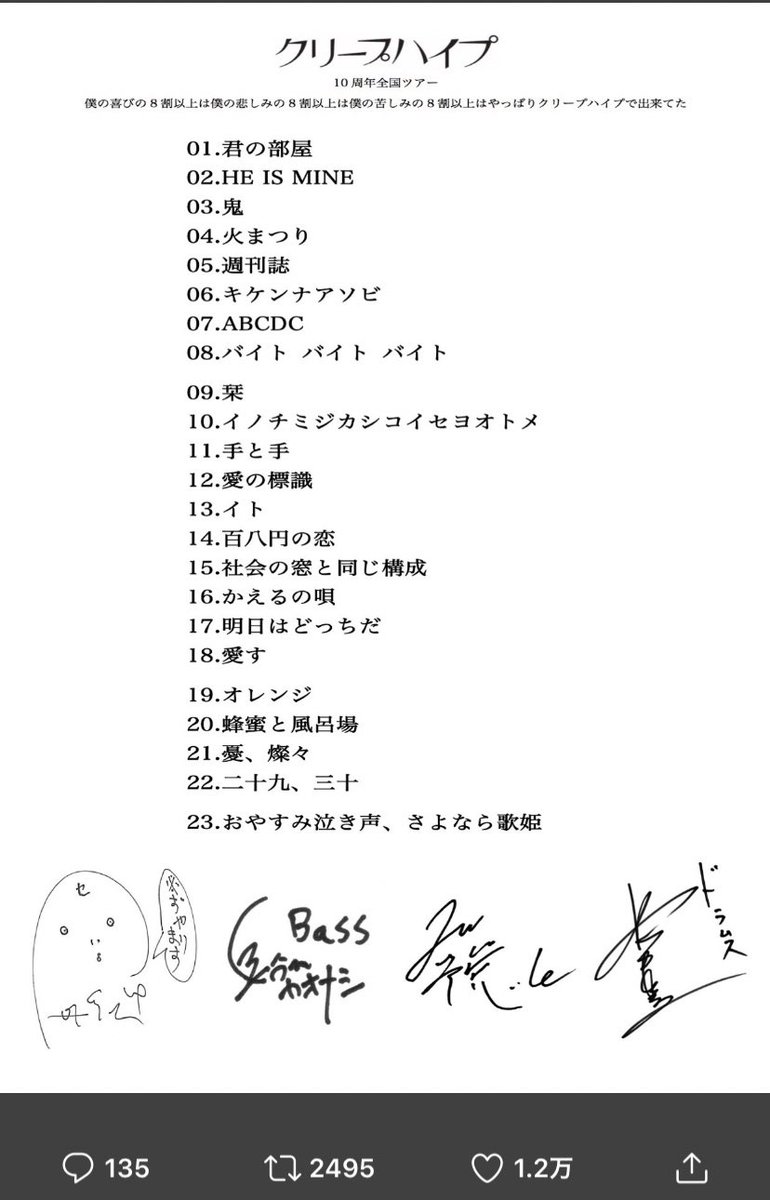 クリープハイプ
10周年全国ツアー
僕の喜びの8割以上は僕の悲しみの8割以上は僕の苦しみの8割以上はやっぱりクリープハイプで出来てた
01.君の部屋
02.HE IS MINE
03.鬼
04.火まつり
05.週刊誌
06.キケンナアソビ
07.ABCDC
08.バイト バイト バイト
09.栞
10.イノチミジカシコイセヨオトメ
11.手と手
12.愛の標識
13.イト
14.百八円の恋
15.社会の窓と同じ構成
16.かえるの唄
17.明日はどっちだ
18.愛す
19.オレンジ
20.蜂蜜と風呂場
21.憂、燦々
22.二十九、三十
23.おやすみ泣き声、さよなら歌姫
セ
必ずやります
Bass
カオナシ
ドラムス
135
2495
1.2万